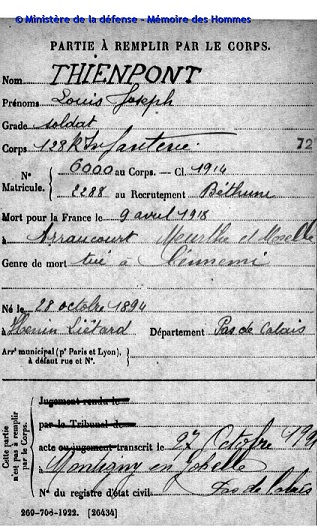 © Ministère de la défense - Mémoire des Hommes
PARTIE À REMPLIR PAR LE CORPS.
Nom THIENPONT
Prénoms Louis Joseph
Grade soldat
Corps 128e Infanterie 72
N° Matricule. 6000 au Corps. — Cl. 1914
2288 au Recrutement Béthune
Mort pour la France le 9 avril 1918
à Arraucourt Meurthe et Moselle
Genre de mort tué à l'ennemi
Né le 28 octobre 1894
à Henin Liétard Département Pas de Calais
Arrt municipal (pr Paris et Lyon),
à défaut rue et N°.
Cette partie n'est pas à remplir par le Corps.
Jugement rendu le
par le Tribunal de
acte ou jugement transcrit le 27 Octobre 19
à Montigny en Gohelle
N° du registre d'état civil Pas de Calais
269-708-1922. [26434]